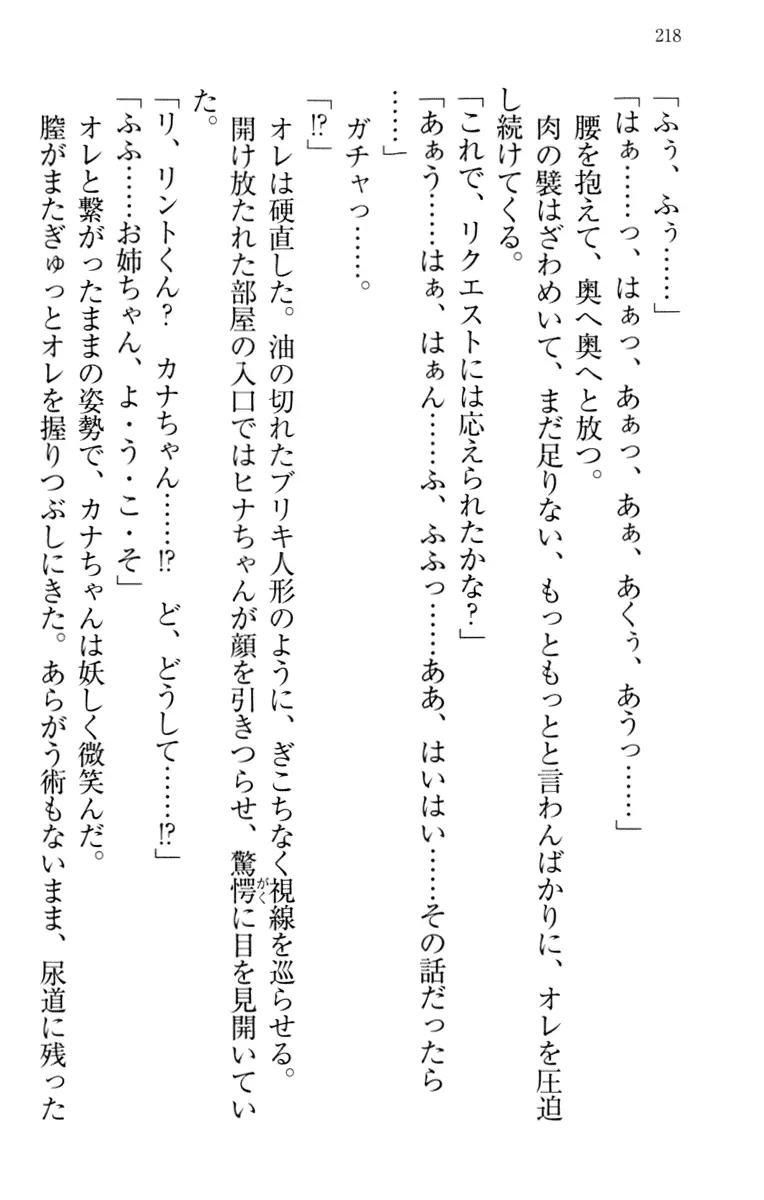 218
「ふぅ、ふぅ……」
「はぁ……っ、はぁっ、あぁっ、あぁ、あくぅ、あうっ……」
腰を抱えて、奥へ奥へと放つ。
肉の襞はざわめいて、まだ足りない、もっともっとと言わんばかりに、オレを圧迫
し続けてくる。
「これで、リクエストには応えられたかな？」
「あぁう……はぁ、はぁん……ふ、ふふっ……ああ、はいはい……その話だったら
……」
ガチャっ……。
「!?」
オレは硬直した。油の切れたブリキ人形のように、ぎこちなく視線を巡らせる。
開け放たれた部屋の入口ではヒナちゃんが顔を引きつらせ、驚愕がくに目を見開いてい
た。
「リ、リントくん？　カナちゃん……!?　ど、どうして……!?」
「ふふ……お姉ちゃん、よ・う・こ・そ」
オレと繋がったままの姿勢で、カナちゃんは妖しく微笑んだ。
膣がまたぎゅっとオレを握りつぶしにきた。あらがう術もないまま、尿道に残った